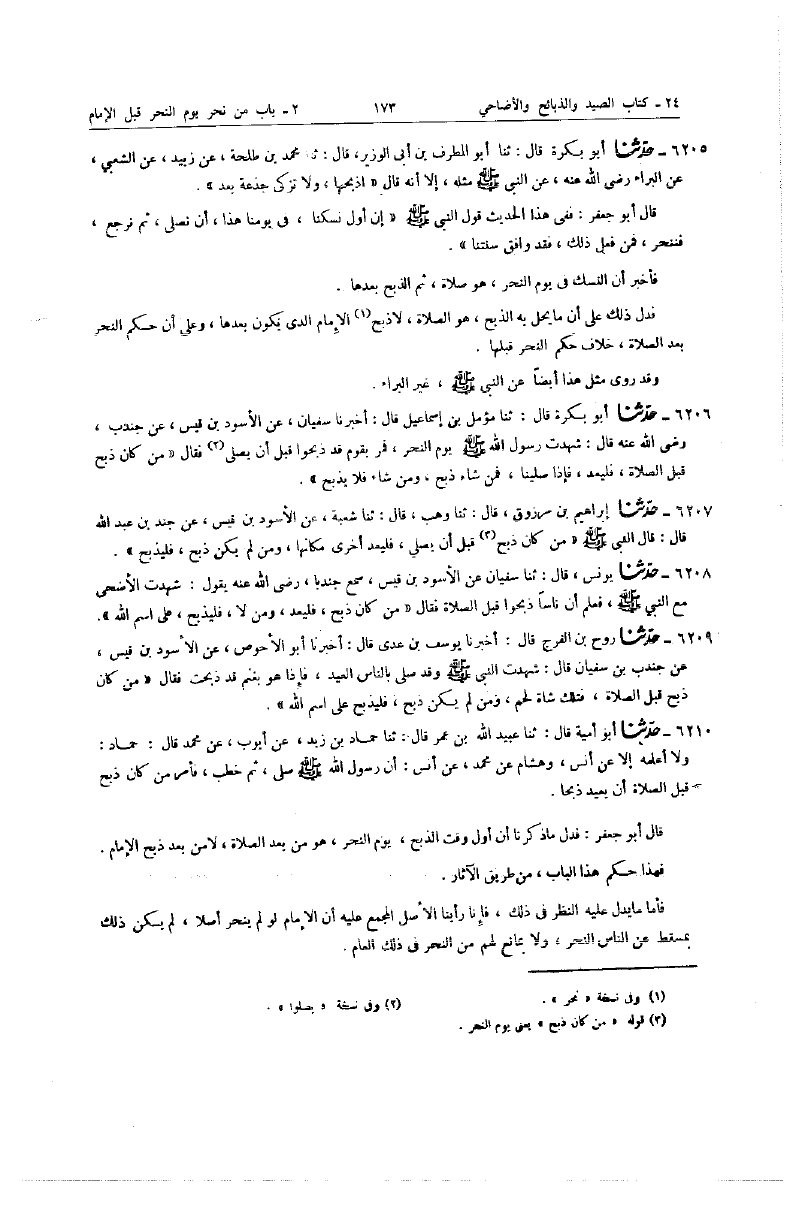 ٢٤ - كتاب الصيد والذبائح والأضاحي ١٧٣ ٢ - باب من نحر يوم النحر قبل الإمام
٦٢٠٥ - حدثنا أبو بكرة قال : ثنا أبو المطرف بن أبى الوزير، قال : ثنا محمد بن طلحة ، عن زبيد ، عن الشعبي ،
عن البراء رضى الله عنه ، عن النبي ﷺ مثله ، إلا أنه قال « اذبحها ، ولا تزكى جذعة بعد » .
قال أبو جعفر : ففى هذا الحديث قول النبي ﷺ « إن أول نسكنا ، فى يومنا هذا ، أن نصلى ، ثم نرجع ،
فننحر ، فمن فعل ذلك ، فقد وافق سنتنا » .
فأخبر أن النسك فى يوم النحر ، هو صلاة ، ثم الذبح بعدها .
فدل ذلك على أن مايحل به الذبح ، هو الصلاة ، لاذبح(١) الإمام الذى يكون بعدها ، وعلى أن حكم النحر
بعد الصلاة ، خلاف حكم النحر قبلها .
وقد روى مثل هذا أيضاً عن النبي ﷺ ، غير البراء .
٦٢٠٦ - حدثنا أبو بكرة قال : ثنا مؤمل بن إسماعيل قال : أخبرنا سفيان ، عن الأسود بن قيس ، عن جندب ،
رضى الله عنه قال : شهدت رسول الله ﷺ يوم النحر ، فمر بقوم قد ذبحوا قبل أن يصلى(٢) فقال « من كان ذبح
قبل الصلاة ، فليعد ، فإذا صلينا ، فمن شاء ذبح ، ومن شاء فلا يذبح » .
٦٢٠٧ - حدثنا إبراهيم بن مرزوق ، قال : ثنا وهب ، قال : ثنا شعبة ، عن الأسود بن قيس ، عن جند بن عبد الله
قال : قال النبي ﷺ « من كان ذبح(٣) قبل أن يصلي ، فليعد أخرى مكانها ، ومن لم يكن ذبح ، فليذبح » .
٦٢٠٨ - حدثنا يونس ، قال : ثنا سفيان عن الأسود بن قيس ، سمع جندبا ، رضى الله عنه يقول : شهدت الأضحى
مع النبي ﷺ ، فعلم أن ناساً ذبحوا قبل الصلاة فقال « من كان ذبح ، فليعد ، ومن لا ، فليذبح ، على اسم الله ».
٦٢٠٩ - حدثنا روح بن الفرج قال : أخبرنا يوسف بن عدى قال : أخبرنا أبو الأحوص ، عن الأسود بن قيس ،
عن جندب بن سفيان قال : شهدت النبي ﷺ وقد صلى بالناس العيد ، فإذا هو بغنم قد ذبحت فقال « من كان
ذبح قبل الصلاة ، فتلك شاة لحم ، ومن لم يكن ذبح ، فليذبح على اسم الله » .
٦٢١٠ - حدثنا أبو أمية قال : ثنا عبيد الله بن عمر قال : ثنا حماد بن زيد ، عن أيوب ، عن محمد قال : حماد :
ولا أعلمه إلا عن أنس ، وهشام عن محمد ، عن أنس : أن رسول الله ﷺ صلى ، ثم خطب ، فأمر من كان ذبح
قبل الصلاة أن يعيد ذبحا .
قال أبو جعفر : فدل ماذكرنا أن أول وقت الذبح ، يوم النحر ، هو من بعد الصلاة ، لامن بعد ذبح الإمام .
فهذا حكم هذا الباب ، من طريق الآثار .
فأما مايدل عليه النظر فى ذلك ، فإنا رأينا الأصل المجمع عليه أن الإمام لو لم ينحر أصلا ، لم يكن ذلك
بمسقط عن الناس النحر ، ولا بمانع لهم من النحر فى ذلك العام .
(١) وفى نسخة « نحر » . (٢) وفى نسخة « يصلوا » .
(٣) قوله « من كان ذبح » يعنى يوم النحر .